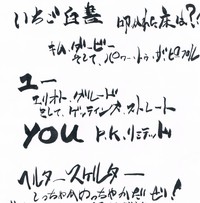 いちご白書 叩かれた床は?
キム・ダービー
そして、パワー・トゥ・ザ・ピープル
ユー
エリオト・グルード
そして、ゲッティング・ストレート
YOU P.K.リミテッド
ヘルタースケルター
しっちゃかめっちゃかだぜい!